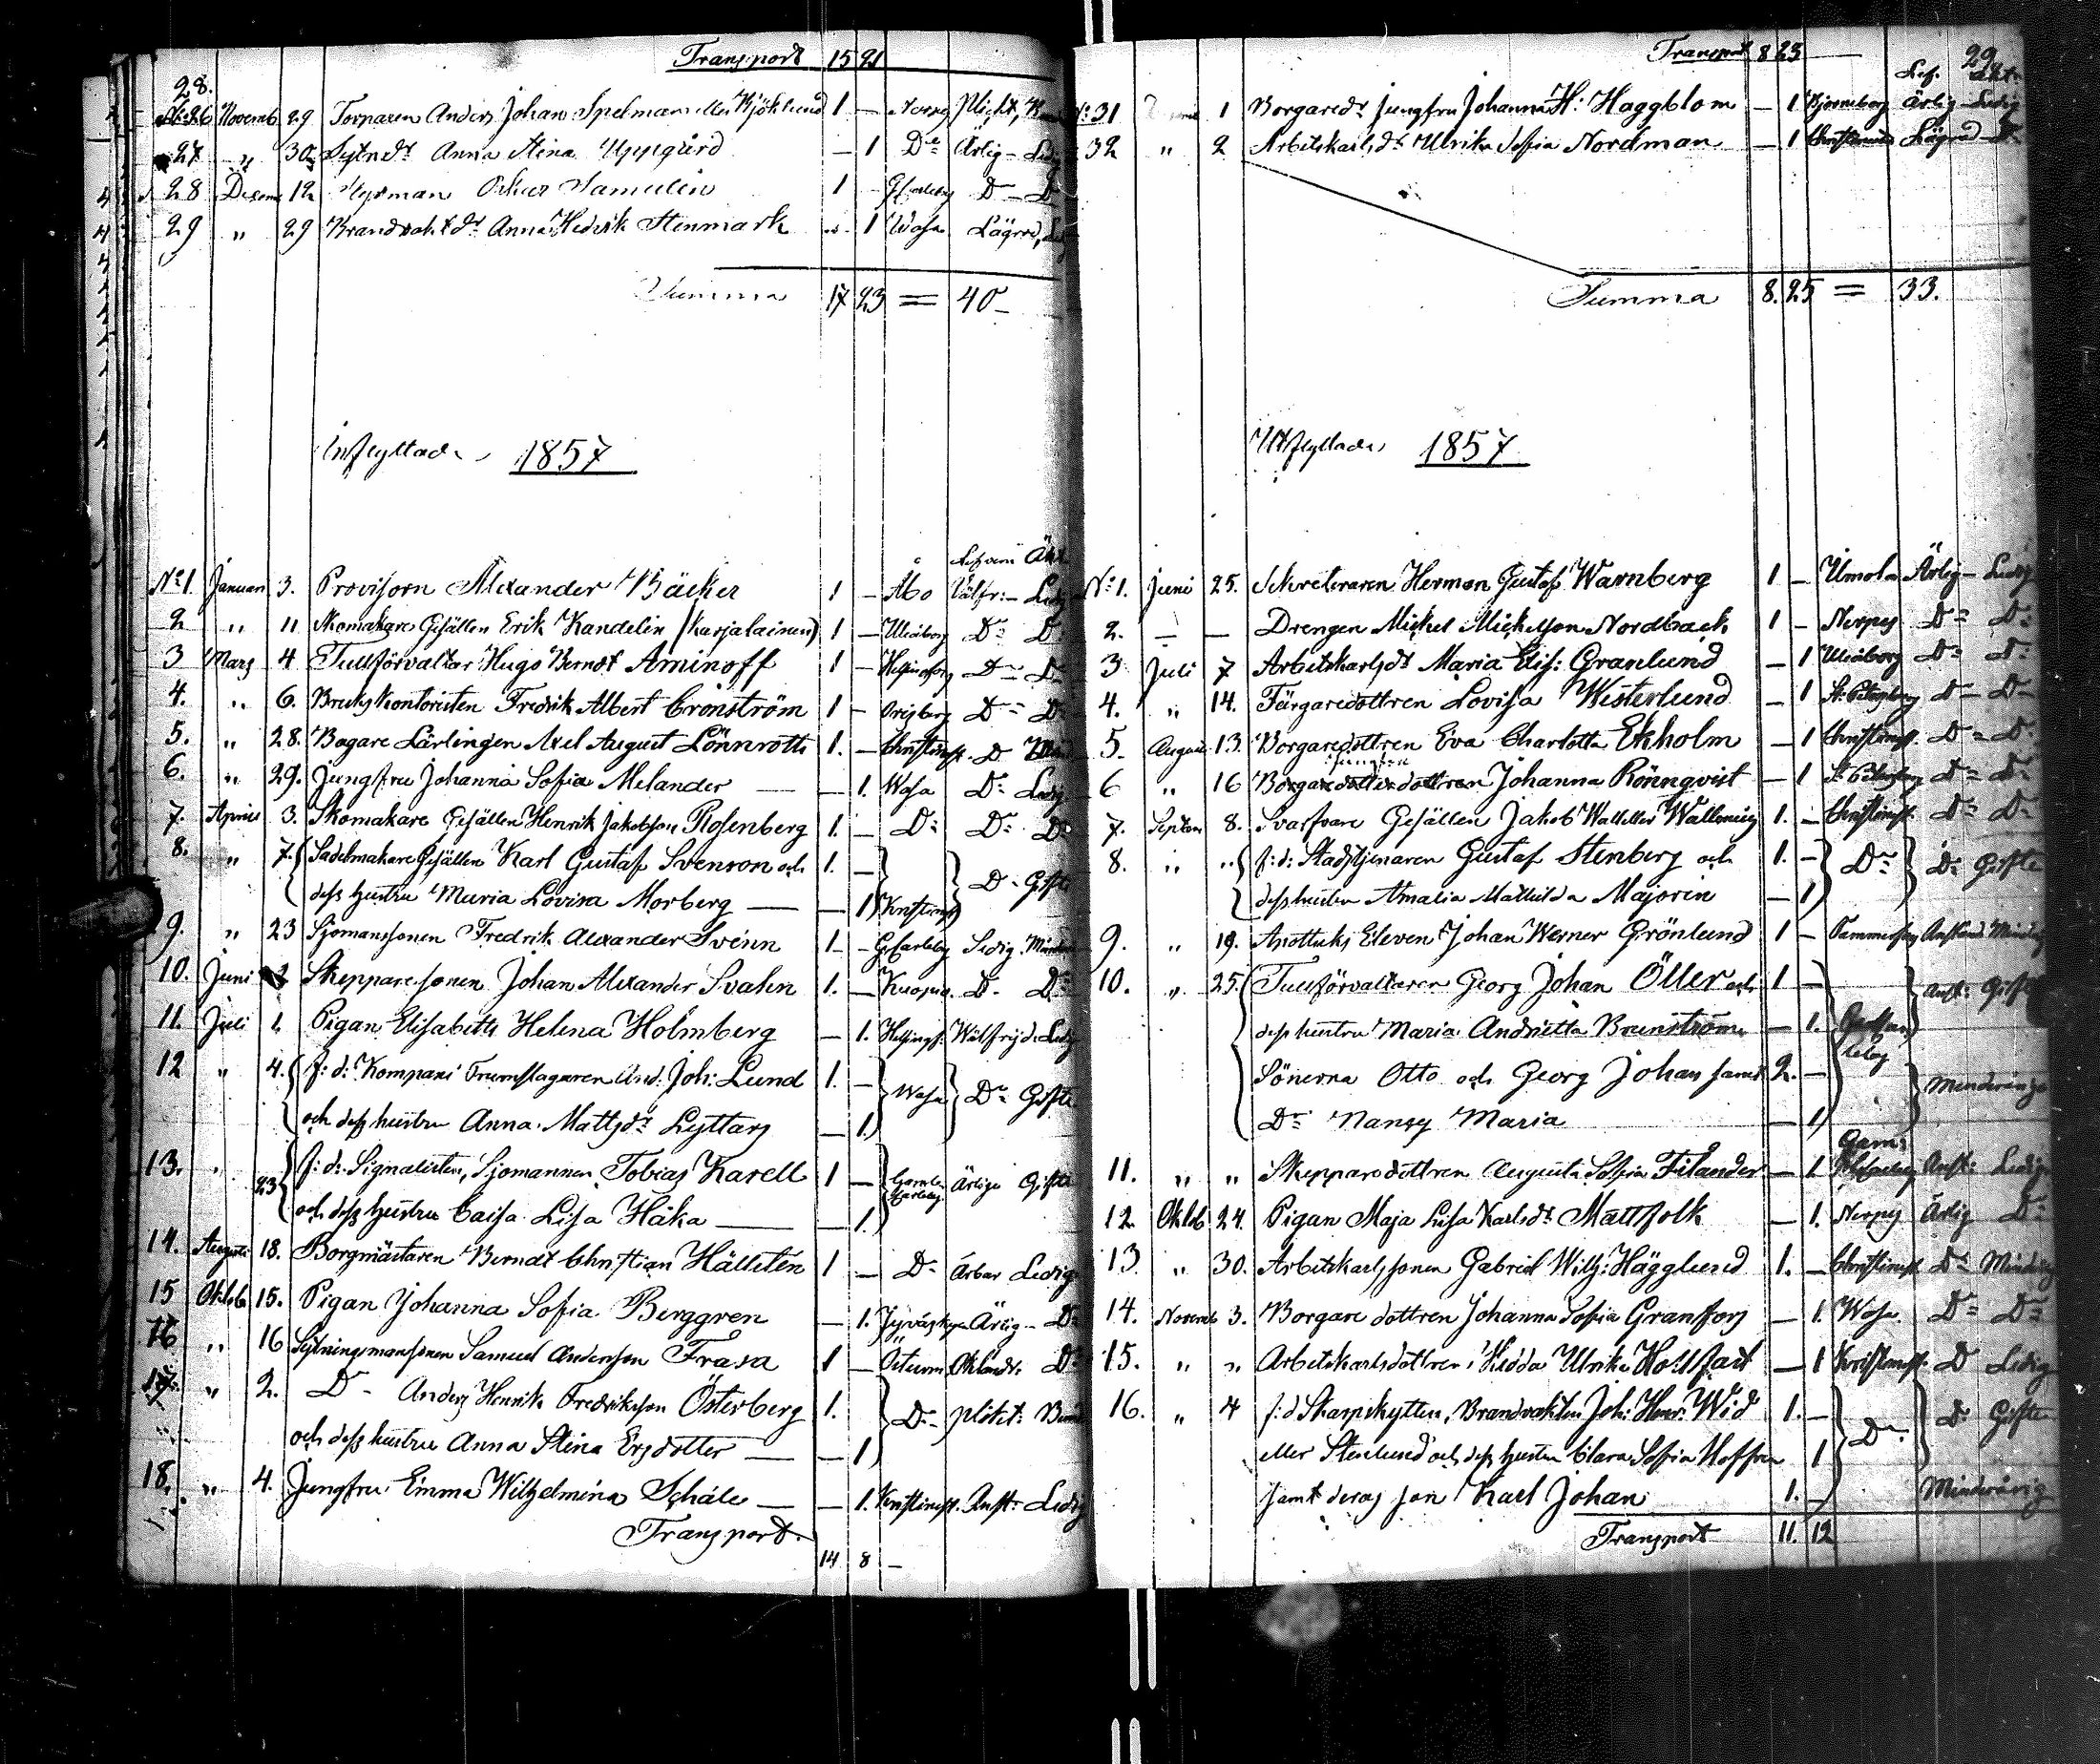 28.
Transport 15 21
No 26 Novemb 29 Torparen Anders Johan Spelman eller Björklund 1 — Nerpes Plicht,
27 " 30 Sytnds Anna Stina Uppgård — 1 Do Ärlig — Ledig
28 Decem 12 Styrman Oskar Samulin 1 — Gcarleby D — D
29 " 29 Brandvakt dr Anna Hedvik Stenmark — 1 Wasa Lägrad,
Summa 17 23 = 40 —
Inflyttade 1857
Lefvern Äkt
No 1 Januari 3. Provisorn Alexander Bäcker 1 — Åbo Välfr: — Ledig
2 " 11 Skomakare Gesällen Erik Kandelin (Karjalainen) 1 — Uleåborg Do D
3 Mars 4 Tullförvaltar Hugo Berndt Aminoff 1 — Helsingfors D — D
4. " 6. Bruks Kontoristen Fredrik Albert Cronström 1 — Orisberg D — D
5. " 28. Bagare Lärlingen Axel August Lönnroth 1. — Christinest. D
6. " 29. Jungfru Johanna Sofia Melander — — 1. Wasa Do Ledig
7. April 3. Skomakare Gesällen Henrik Jakobsson Rosenberg 1. — Do Do Do
8. " 7. Sadelmakare Gesällen Karl Gustaf Svenson och 1. — D - Gifte
dess hustru Maria Lovisa Morberg — — 1 Kristinest
9. " 23 Sjömanssonen Fredrik Alexander Svenn 1 — Gcarleby Ledig. Minder
10. Juni Skepparesonen Johan Alexander Svahn 1. — Kuopio D. Do
11. Juli 1. Pigan Elisabeth Helena Holmberg — 1. Helsingf. Wälfrejd. Ledig
12 " 4. f:d: Kompani Trumslagaren And: Joh: Lund 1. — Wasa Do Gifte
och dess hustru Anna Mattsdr Lyttars — 1.
13. " 23 f:d: Signalisten, Sjömannen Tobias Karell 1 — Gamla Carleby Ärliga Gifte
och dess hustru Caisa Lisa Håka — — 1.
14. Augusti 18. Borgmästaren Berndt Christian Hällsten 1 — Do Ärbar Ledig
15 Oktob 15. Pigan Johanna Sofia Berggren — 1. Jyväskyla Ärlig — Do
16 " 16 Sytningsmansonen Samuel Andersson Frasa 1 — D
17. " 2. D - Anders Henrik Fredriksson Österberg 1. Do
och dess hustru Anna Stina Ersdotter — — 1
18. " 4. Jungfru Emma Wilhelmina Schåle — — 1. Kristinest. Anst: Ledig
Transport. 14 8 —
29
Transport 8 23 —
Lef. Äkt.
No: 31 1 Borgaredr jungfru Johanna H: Haggblom — 1 Björneborg Ärlig — Ledig
32 " 2 Arbetskarlsdr Ulrika Sofia Nordman — 1 Christinest Lägrad — D
Summa 8. 25 = 33.
Utflyttade 1857
No 1. Juni 25. Sekreteraren Herman Gustaf Warnberg 1 — Ulmola Ärlig — Ledig
2. — — Drengen Mickel Mickelson Nordback 1 — Nerpes Do Do
3 Juli 7 Arbetskarlsdr Maria Elis: Granlund — 1 Uleåborg Do Do
4. " 14. Färgaredottren Lovisa Westerlund — 1 St: Petersburg D — D —
5. August. 13. Borgaredottren Eva Charlotta Ekholm — 1 Christinest. D = D
jungfru
6 " 16 Borgaredottren Johanna Rönnqvist — 1 St. Petersburg Do Do
7. Septem 8. Svarfvare Gesällen Jakob 1. — Christinest. Do Do
8. " " f:d: Stadstjenaren Gustaf Stenberg och 1. — Do Do Gifte
dess hustru Amalia Mathilda Majorin — 1
9. " 19. Apotheks Eleven Johan Werner Grönlund 1 — Tammerfors
10. " 25. Tullförvaltaren Georg Johan Öller och 1 — Anst: Gifte
dess hustru Maria Andrietta Brunström — 1. Gamla Carleby
Sönerna Otto och Georg Johan samt 2. — Minderåriga
Do Nancy Maria — 1
11. " " Skepparedottren Augusta Sofia Filander — 1 Gam: Carleby Anst: Ledig
12. Oktob 24. Pigan Maja Lisa Karlsdr Mattfolk — 1. Nerpes Ärlig Do
13 " 30. Arbetskarlssonen Gabriel Wilh: Hägglund 1. — Christinest. Do Minderårig
14. Novemb 3. Borgare dottren Johanna Sofia Granfors — 1. Wasa. D = D =
15. " " Arbetskarlsdottren Hedda Ulrika Hollsfast — 1 Kristinest: D Ledig
16. " 4 f:d Skarpskytten, Brandvakten Joh: Henr: Wid 1. — Do D Gifte
eller Stenlund och dess hustru Clara Sofia Hoffren 1
samt deras son Karl Johan 1. — Minderårig
Transport 11. 12